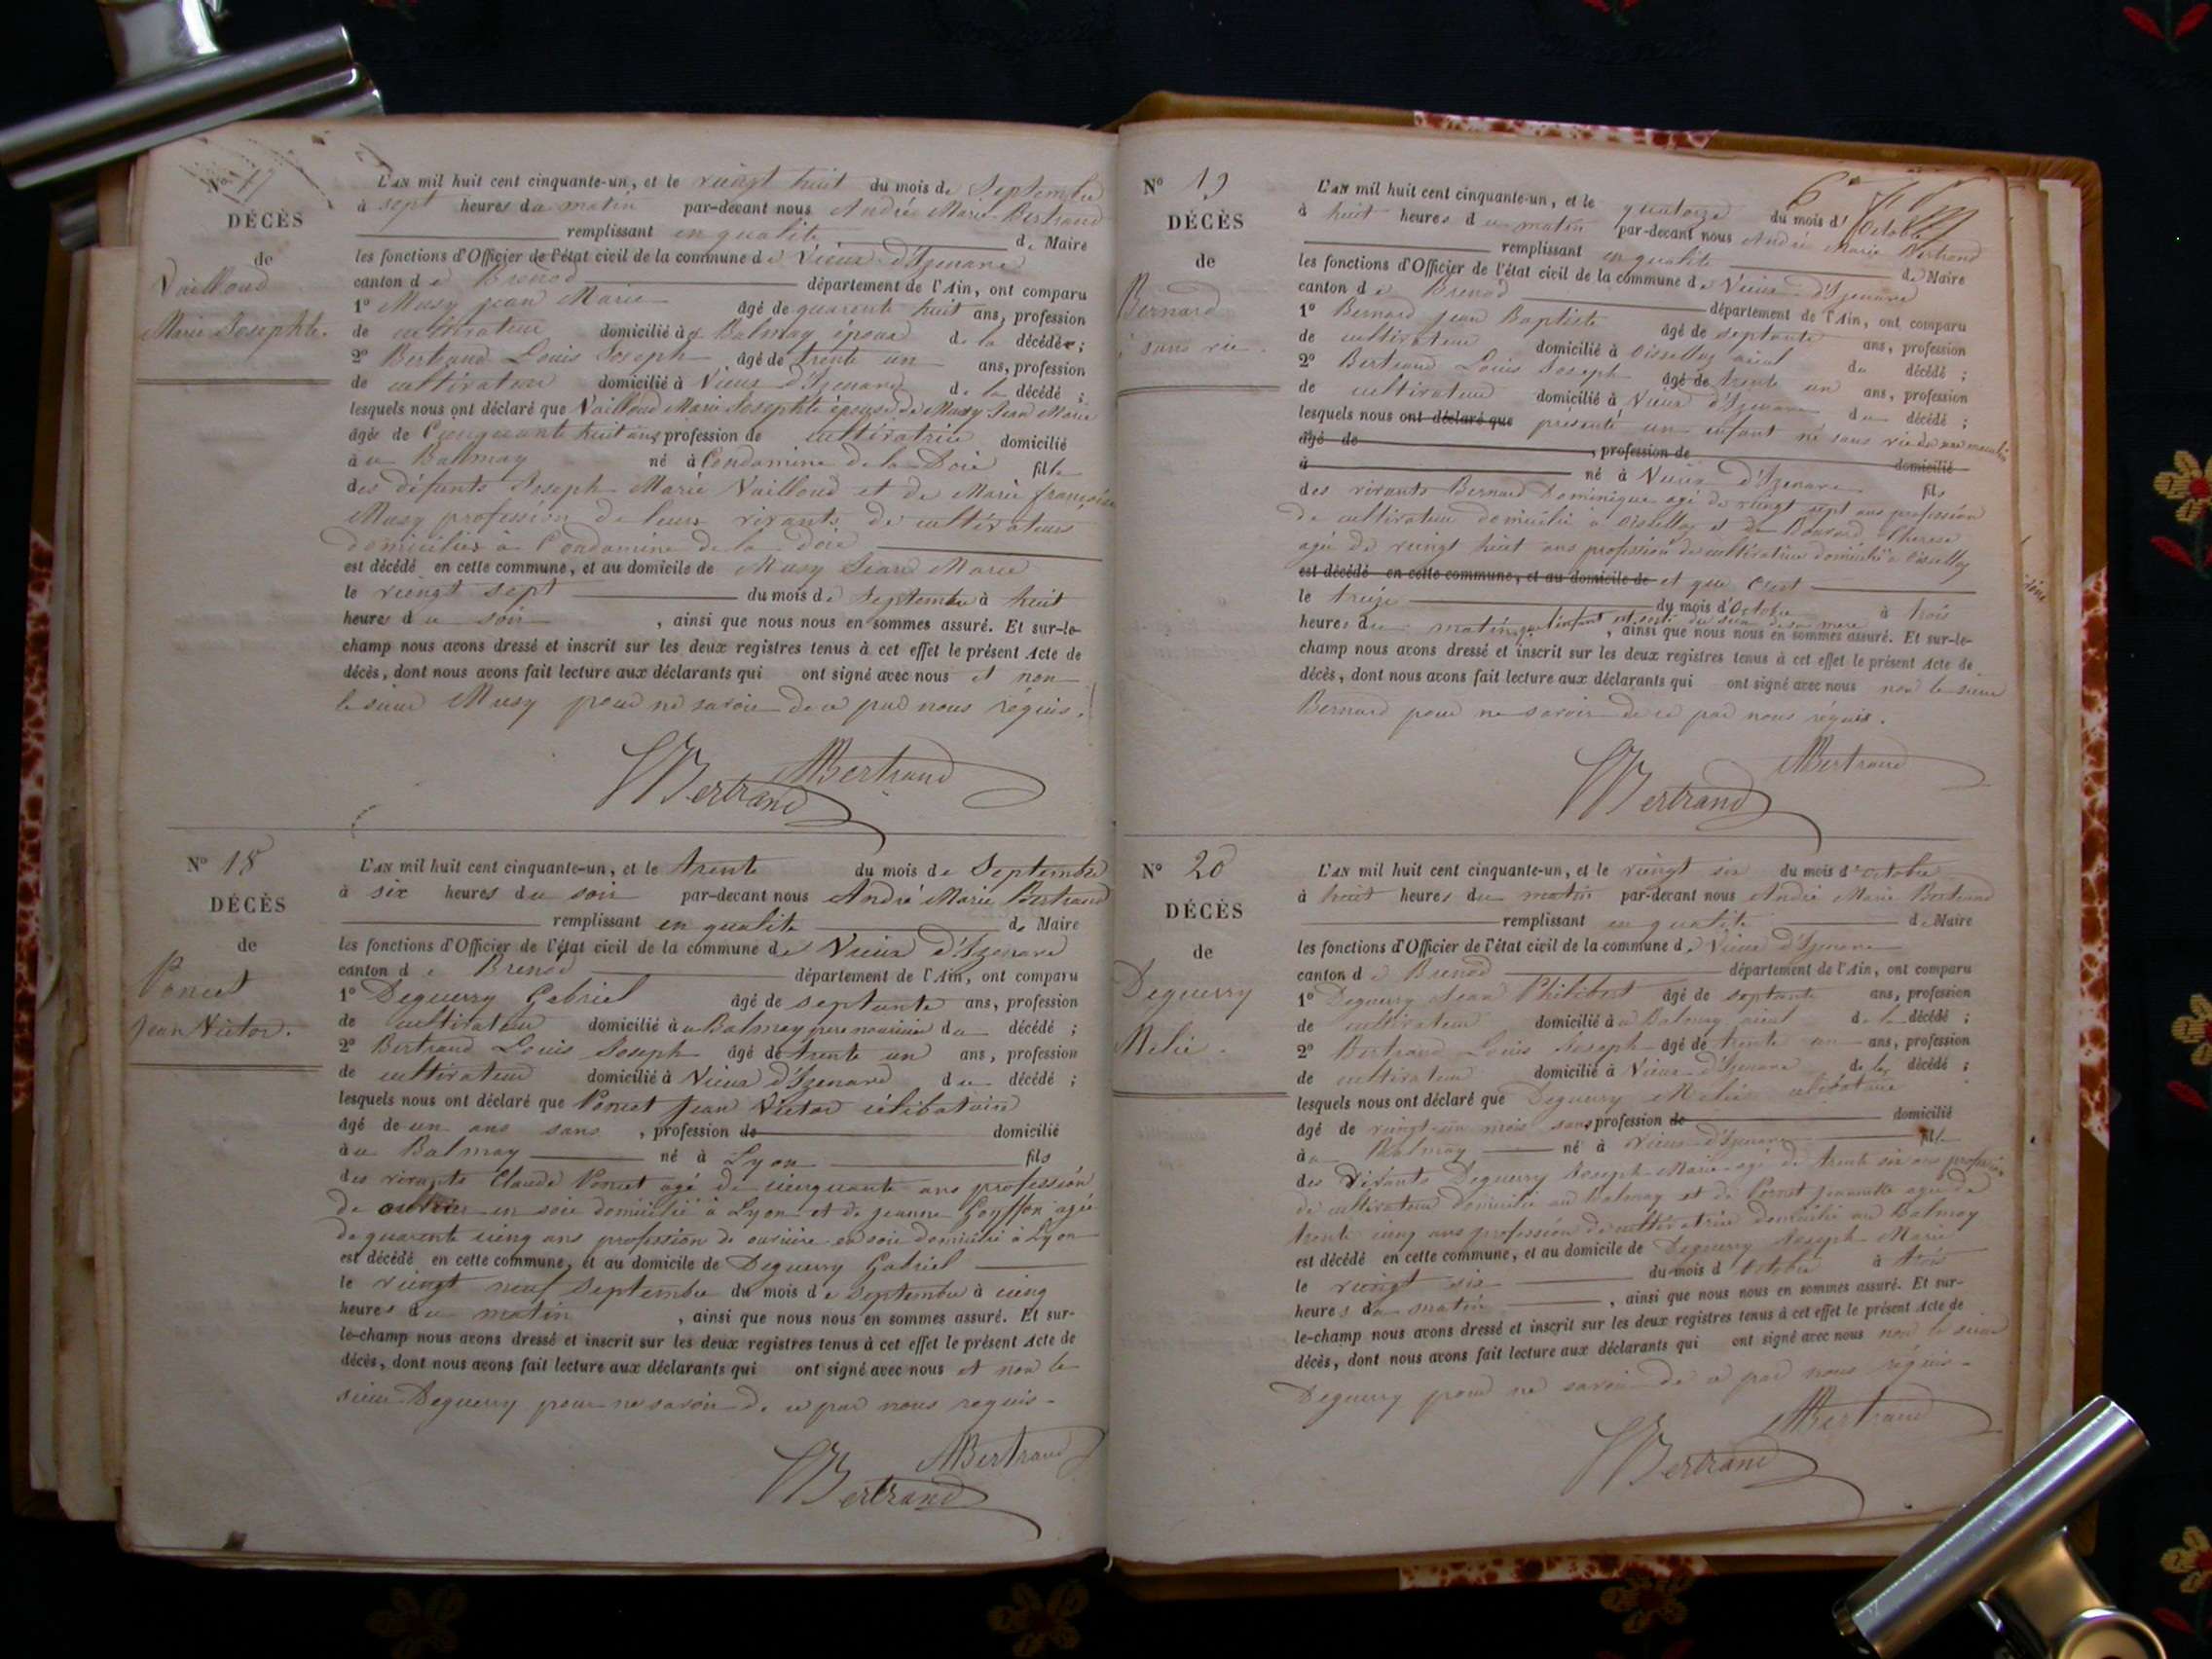 N° 17
DÉCÈS
de
Vailloud
Marie Josephte.
L'AN mil huit cent cinquante-un, et le vingt huit du mois de Septembre
à sept heures du matin par-devant nous André Marie Bertrand
remplissant en qualité de Maire
les fonctions d'Officier de l'état civil de la commune de Vieux d'Izenave
canton de Brenod département de l'Ain, ont comparu
1° Musy jean Marie âgé de quarente huit ans, profession
de cultivateur domicilié à Balmay époux de la décédée ;
2° Bertrand Louis Joseph âgé de trente un ans, profession
de cultivateur domicilié à Vieux d'Izenave de la décédé ;
lesquels nous ont déclaré que Vailloud Marie Josephte épouse de Musy Jean Marie
âgée de Cinquante huit ans profession de cultivatrice domicilié
à au Ballmay né à Condamine de la Doie fille
des défunts Joseph Marie Vailloud et de Marie françoise
Musy profession de leurs vivants de cultivateurs
domiciliés à Condamine de la Doie
est décédé en cette commune, et au domicile de Musy Jean Marie
le vingt sept du mois de Septembre à huit
heures du soir , ainsi que nous nous en sommes assuré. Et sur-le-
champ nous avons dressé et inscrit sur les deux registres tenus à cet effet le présent Acte de
décès, dont nous avons fait lecture aux déclarants qui ont signé avec nous et non
le sieur Musy pour ne savoir de ce par nous réquis.
Bertrand
Bertrand
N° 18
DÉCÈS
de
Poncet
Jean Victor.
L'AN mil huit cent cinquante-un, et le trente du mois de Septembre
à six heures du soir par-devant nous André Marie Bertrand
remplissant en qualité de Maire
les fonctions d'Officier de l'état civil de la commune de Vieux d'Izenave
canton de Brenod département de l'Ain, ont comparu
1° Deguerry Gabriel âgé de septante ans, profession
de cultivateur domicilié à au Balmay pere nouricier du décédé ;
2° Bertrand Louis Joseph âgé de trente un ans, profession
de cultivateur domicilié à Vieux d'Izenave du décédé ;
lesquels nous ont déclaré que Poncet Jean Victor célibataire
âgé de un ans sans , profession de domicilié
à au Balmay né à Lyon fils
des vivants Claude Poncet agé de cinquante ans profession
de ouvrier en soie domicilié à Lyon et de jeanne Goyffon agée
de quarente cinq ans profession de ouvrière en soie domicilié à Lyon
est décédé en cette commune, et au domicile de Deguerry Gabriel
le vingt neuf Septembre du mois de Septembre à cinq
heures du matin , ainsi que nous nous en sommes assuré. Et sur-
le-champ nous avons dressé et inscrit sur les deux registres tenus à cet effet le présent Acte de
décès, dont nous avons fait lecture aux déclarants qui ont signé avec nous et non le
sieur Deguerry pour ne savoir de ce par nous requis.
Bertrand
Bertrand
N° 19
DÉCÈS
de
Bernard
sans vie.
L'AN mil huit cent cinquante-un, et le quatorze du mois d'Octobre
à huit heures du matin par-devant nous André Marie Bertrand
remplissant en qualité de Maire
les fonctions d'Officier de l'état civil de la commune de Vieux d'Izenave
canton de Brenod département de l'Ain, ont comparu
1° Bernard jean Baptiste âgé de septante ans, profession
de cultivateur domicilié à Oisselloz aieul du décédé ;
2° Bertrand Louis Joseph âgé de trente un ans, profession
de cultivateur domicilié à Vieux d'Izenave du décédé ;
lesquels nous ont déclaré que présenté un enfant né sans vie
âgé de , profession de domicilié
à né à Vieux d'Izenave fils
des vivants Bernard Dominique agé de vingt sept ans profession
de cultivateur domicilié à Oisselloz et de Therese
agée de vingt huit ans profession de cultivatrice domicilié à Oisselloz
est décédé en cette commune, et au domicile de et que c'est
le treize du mois d'Octobre à trois
heures du matin que l'enfant est sorti du sein de sa mere , ainsi que nous nous en sommes assuré. Et sur-le-
champ nous avons dressé et inscrit sur les deux registres tenus à cet effet le présent Acte de
décès, dont nous avons fait lecture aux déclarants qui ont signé avec nous non le sieur
Bernard pour ne savoir de ce par nous réquis.
Bertrand
Bertrand
N° 20
DÉCÈS
de
Deguerry
Melie.
L'AN mil huit cent cinquante-un, et le vingt six du mois d'Octobre
à huit heures du matin par-devant nous André Marie Bertrand
remplissant en qualité de Maire
les fonctions d'Officier de l'état civil de la commune de Vieux d'Izenave
canton de Brenod département de l'Ain, ont comparu
1° Deguerry Jean Philibert âgé de septante ans, profession
de cultivateur domicilié à au Balmay aieul de la décédé ;
2° Bertrand Louis Joseph âgé de trente un ans, profession
de cultivateur domicilié à Vieux d'Izenave de la décédé ;
lesquels nous ont déclaré que Deguerry Melie célibataire
âgé de vingt un mois sans profession de domicilié
à au Balmay né à Vieux d'Izenave fille
des vivants Deguerry Joseph Marie agé de trente six ans profession
de cultivateur domicilié au Balmay et de Poncet Jeannette agée de
trente cinq ans profession de cultivatrice domicilié au Balmay
est décédé en cette commune, et au domicile de Deguerry Joseph Marie
le vingt six du mois d Octobre à trois
heures du matin , ainsi que nous nous en sommes assuré. Et sur-
le-champ nous avons dressé et inscrit sur les deux registres tenus à cet effet le présent Acte de
décès, dont nous avons fait lecture aux déclarants qui ont signé avec nous non le sieur
Deguerry pour ne savoir de ce par nous réquis.
Bertrand
Bertrand